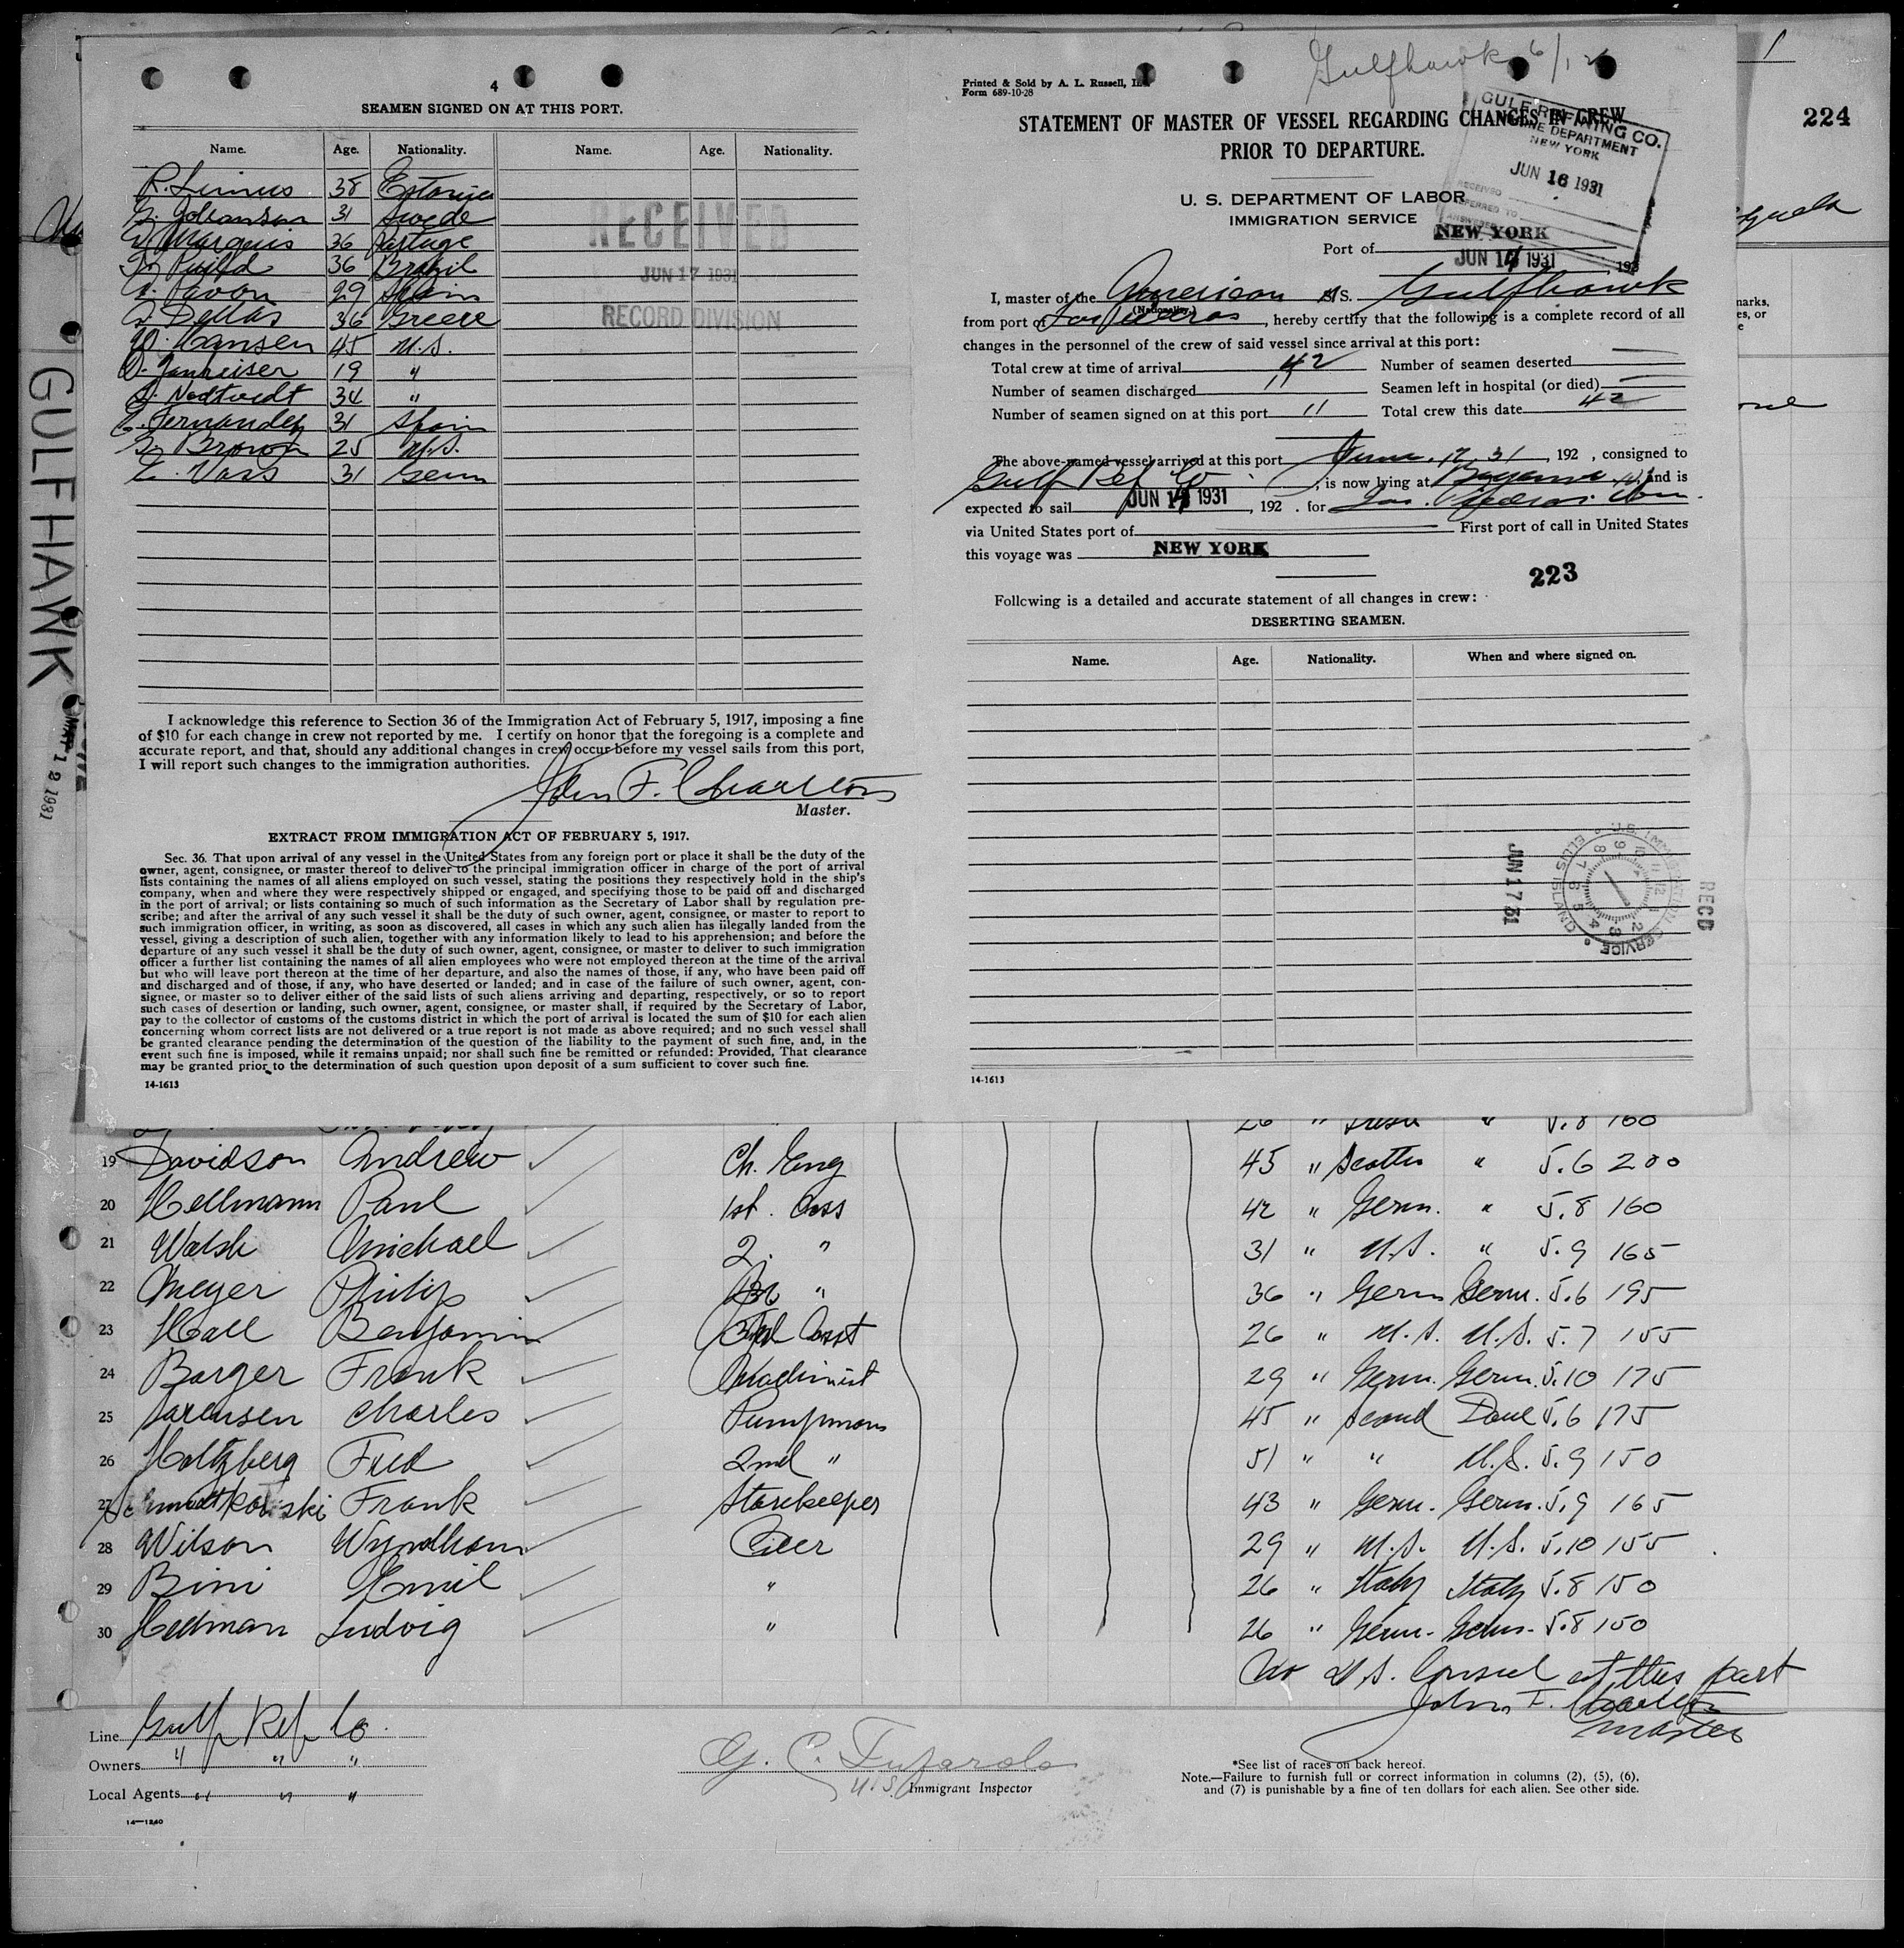 4
SEAMEN SIGNED ON AT THIS PORT.
Name. Age. Nationality. Name. Age. Nationality.
38
31 Swede
36
36 Brazil
29 Spain
36 Greece
W. Hansen 45 U.S.
19 "
34 "
Fernandez 31 Spain
Brown 25 U.S.
31 Germ
RECEIVED
JUN 17 1931
RECORD DIVISION
I acknowledge this reference to Section 36 of the Immigration Act of February 5, 1917, imposing a fine
of $10 for each change in crew not reported by me. I certify on honor that the foregoing is a complete and
accurate report, and that, should any additional changes in crew occur before my vessel sails from this port,
I will report such changes to the immigration authorities.
John F. Charlton
Master.
EXTRACT FROM IMMIGRATION ACT OF FEBRUARY 5, 1917.
Sec. 36. That upon arrival of any vessel in the United States from any foreign port or place it shall be the duty of the
owner, agent, consignee, or master thereof to deliver to the principal immigration officer in charge of the port of arrival
lists containing the names of all aliens employed on such vessel, stating the positions they respectively hold in the ship's
company, when and where they were respectively shipped or engaged, and specifying those to be paid off and discharged
in the port of arrival; or lists containing so much of such information as the Secretary of Labor shall by regulation pre-
scribe; and after the arrival of any such vessel it shall be the duty of such owner, agent, consignee, or master to report to
such immigration officer, in writing, as soon as discovered, all cases in which any such alien has illegally landed from the
vessel, giving a description of such alien, together with any information likely to lead to his apprehension; and before the
departure of any such vessel it shall be the duty of such owner, agent, consignee, or master to deliver to such immigration
officer a further list containing the names of all alien employees who were not employed thereon at the time of the arrival
but who will leave port thereon at the time of her departure, and also the names of those, if any, who have been paid off
and discharged and of those, if any, who have deserted or landed; and in case of the failure of such owner, agent, con-
signee, or master so to deliver either of the said lists of such aliens arriving and departing, respectively, or so to report
such cases of desertion or landing, such owner, agent, consignee, or master shall, if required by the Secretary of Labor,
pay to the collector of customs of the customs district in which the port of arrival is located the sum of $10 for each alien
concerning whom correct lists are not delivered or a true report is not made as above required; and no such vessel shall
be granted clearance pending the determination of the question of the liability to the payment of such fine, and, in the
event such fine is imposed, while it remains unpaid; nor shall such fine be remitted or refunded: Provided, That clearance
may be granted prior to the determination of such question upon deposit of a sum sufficient to cover such fine.
14-1613
Gulfhawk
Printed & Sold by A. L. Russell, Inc.
Form 689-10-28
STATEMENT OF MASTER OF VESSEL REGARDING CHANGES IN CREW
PRIOR TO DEPARTURE.
GULF REFINING CO.
MARINE DEPARTMENT
NEW YORK
JUN 16 1931
RECEIVED
U. S. DEPARTMENT OF LABOR
IMMIGRATION SERVICE
Port of NEW YORK
JUN 1931, 192
I, master of the American S.S. Gulfhawk
(Nationality.)
from port of Las Piedras, hereby certify that the following is a complete record of all
changes in the personnel of the crew of said vessel since arrival at this port:
Total crew at time of arrival 42 Number of seamen deserted
Number of seamen discharged 11 Seamen left in hospital (or died)
Number of seamen signed on at this port 11 Total crew this date 42
The above-named vessel arrived at this port June. 31, 192 , consigned to
Gulf Ref Co, is now lying at Bayonne and is
expected to sail JUN 1931, 192 . for Las Piedras
via United States port of First port of call in United States
this voyage was NEW YORK
223
Following is a detailed and accurate statement of all changes in crew:
DESERTING SEAMEN.
Name. Age. Nationality. When and where signed on.
JUN 17 31
U.S. IMMIGRATION SERVICE ELLIS ISLAND
RECD
14-1613
1
224
GULFHAWK
MAY 12 1931
19 Davidson Andrew Ch. Eng 45 " Scotch " 5.6 200
20 Hellmann Paul 1st. Ass 42 " Germ. " 5.8 160
21 Walsh Michael 2. " 31 " U.S. " 5.9 165
22 Meyer Philip " 36 " Germ Germ. 5.6 195
23 Hall Benjamin Asst 26 " U.S. U.S. 5.7 155
24 Barger Frank Machinist 29 " Germ. Germ. 5.10 175
25 Sorensen Charles Pumpman 45 " Scand Dane 5.6 175
26 Holtzberg Fred 2nd " 51 " " U.S. 5.9 150
27 Frank Storekeeper 43 " Germ. Germ. 5.9 165
28 Wilson Wyndham Oiler 29 " U.S. U.S. 5.10 155
29 Bini Emil " 26 " Italy Italy 5.8 150
30 Hellman Ludvig " 26 " Germ. Germ. 5.8 150
No U.S. Consul at this port
John F. Charlton
Master
Line Gulf Ref Co.
Owners " " "
Local Agents " " "
14—1240
U.S. Immigrant Inspector
*See list of races on back hereof.
Note.—Failure to furnish full or correct information in columns (2), (5), (6),
and (7) is punishable by a fine of ten dollars for each alien. See other side.